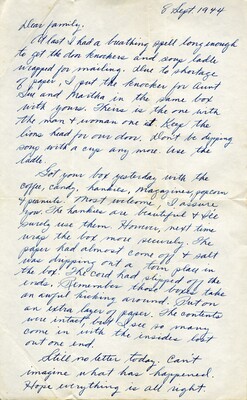 8 Sept 1944
Dear family.
At last I had a breathing spell long enough
to get the door knockers and soup ladle
wrapped for mailing. Due to shortage
of paper, I put the knocker for Aunt
Sue and Martha in the same box
with yours. Theirs is the one with
the man & woman one it. Keep the
lions head for our door. Don't be dipping
soup with a cup any more. Use the
ladle.
Got your box yesterday with the
coffee, candy, hankies, magazines, popcorn
& peanuts. Most welcome, I assure
you. The hankies are beautiful & I'll
surely use them. However, next time
wrap the box more securely. The
paper had almost come off & salt
was dripping out a torn place in
the box. The cord had slipped off the
ends. Remember those boxes take
an awful kicking around. Put on
an extra layer of paper. The contents
were intact, but I see so many
come in with the insides lost
out one end.
Still no letter today. Can't
imagine what has happened.
Hope everything is all right.